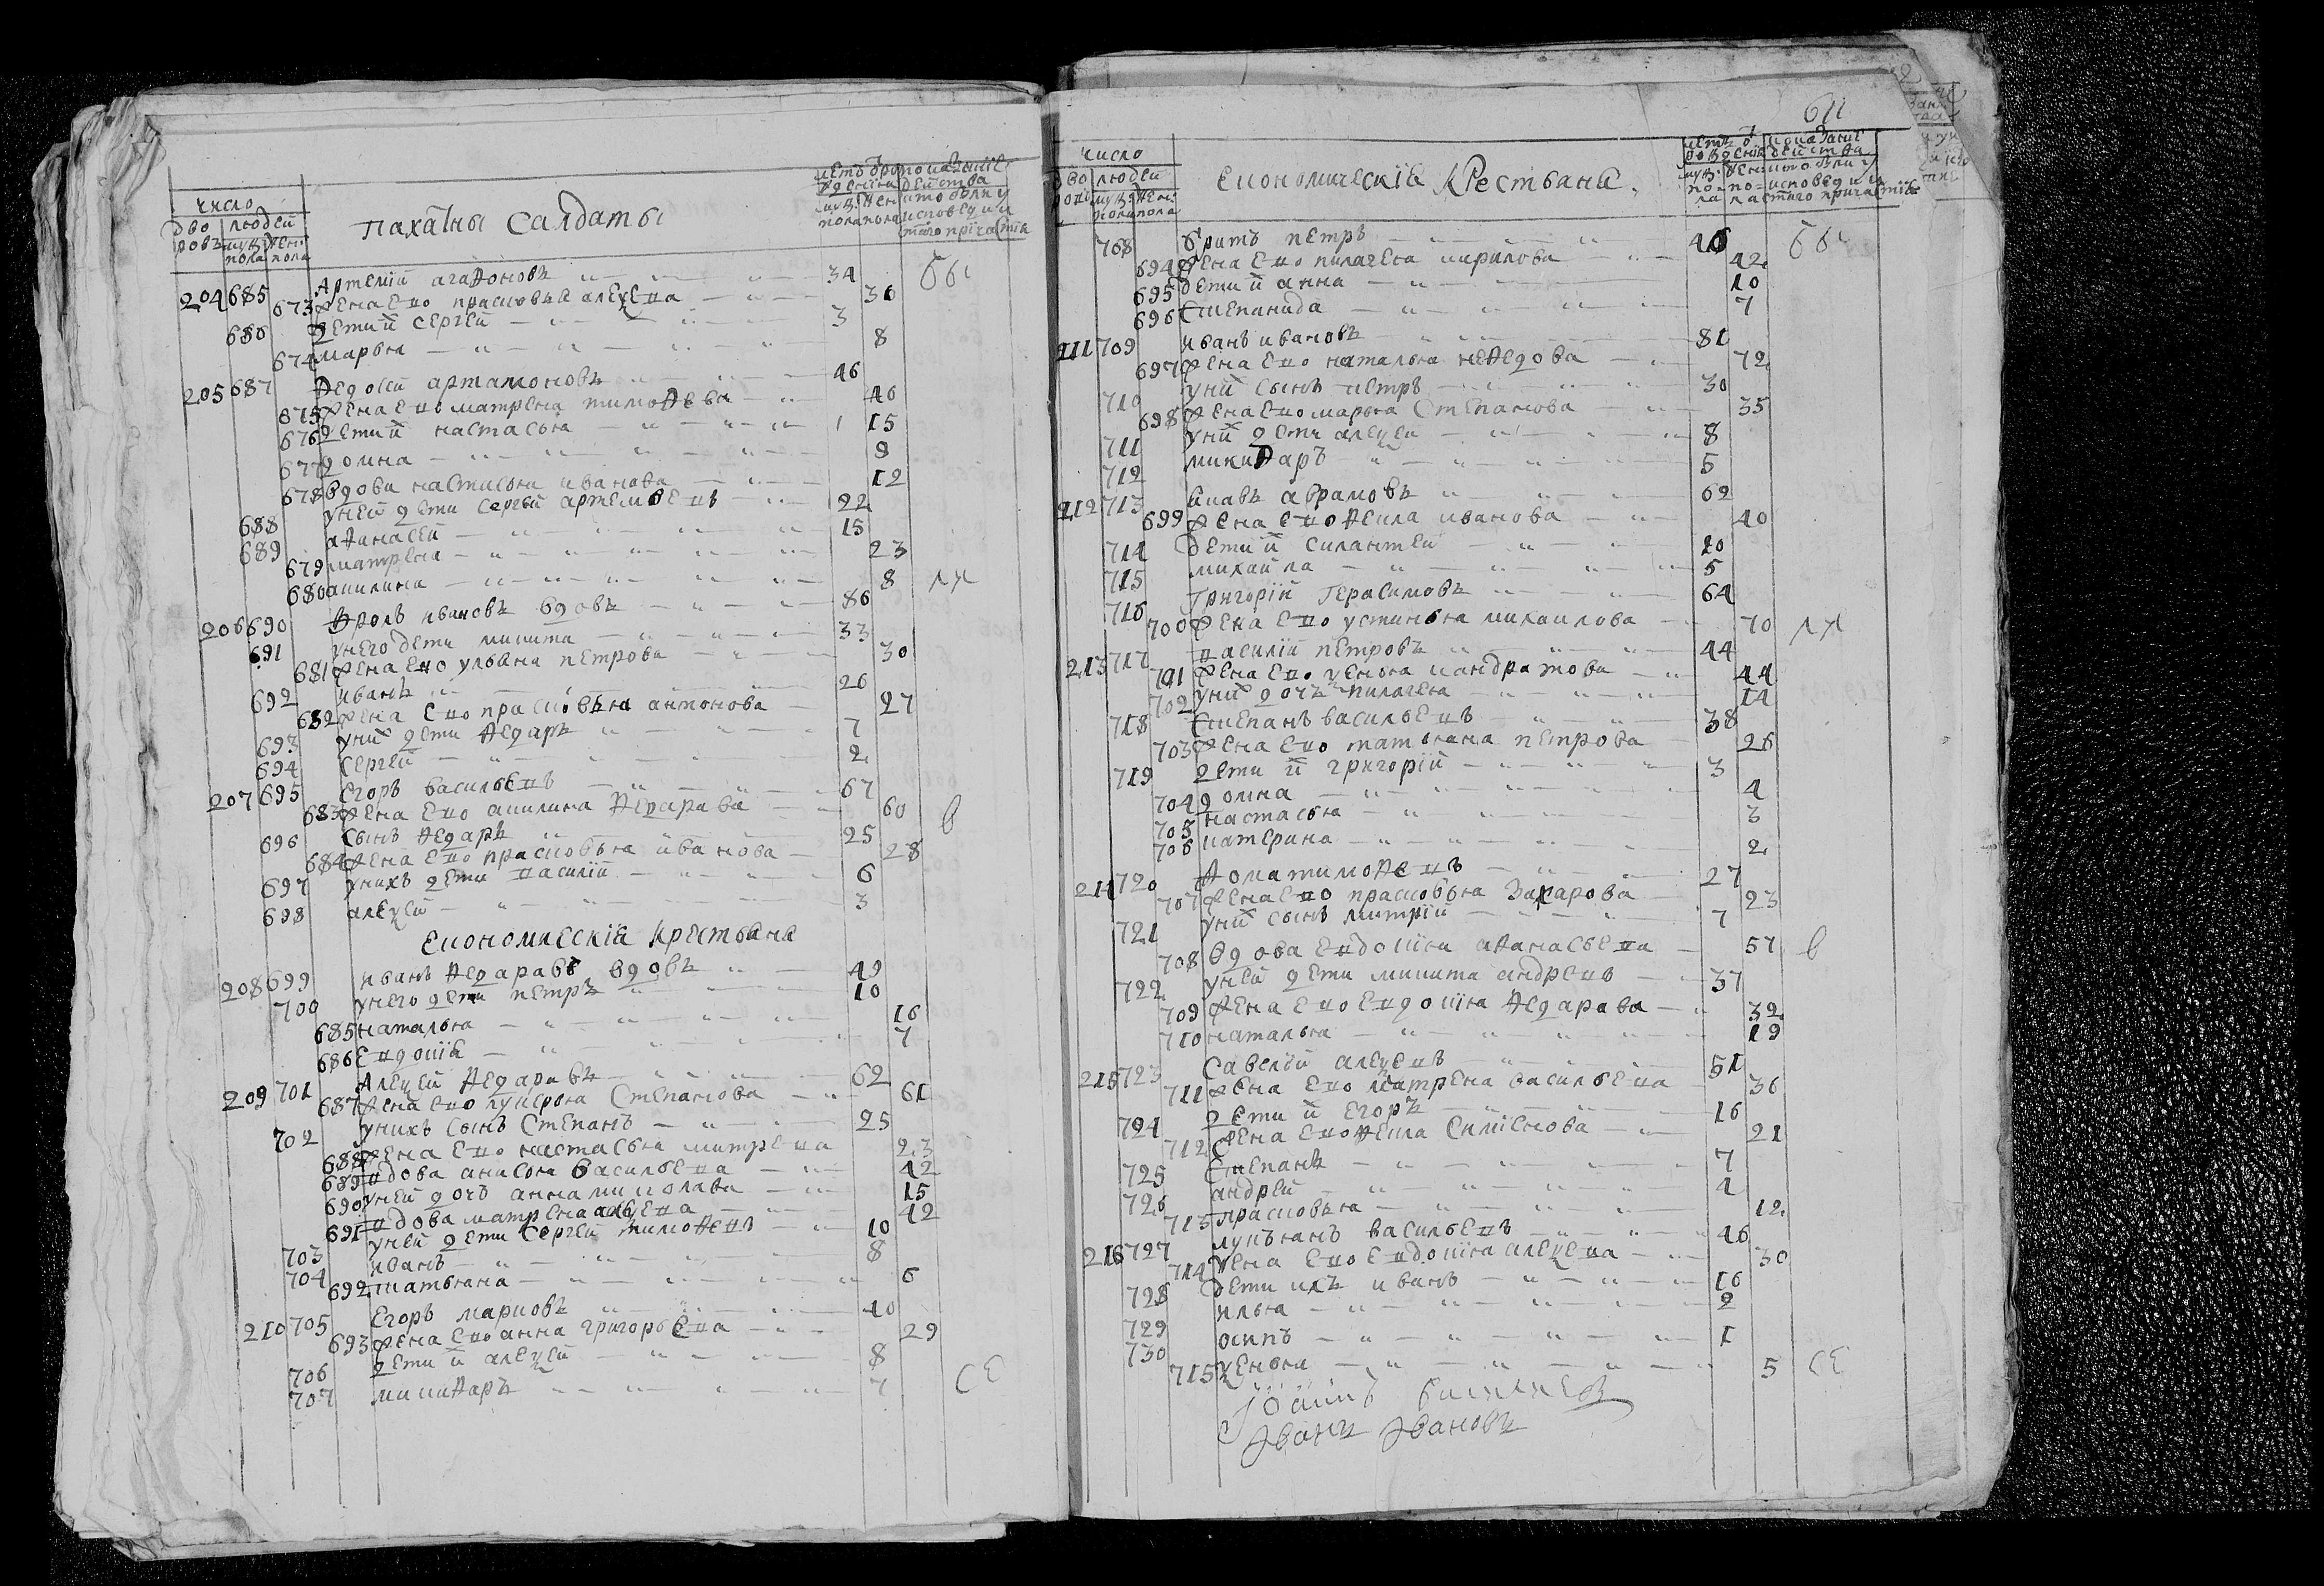 число
дво людей
ровъ муж жен
пола пола
пахатны салдаты
204 685 Артемiй агафоновъ 34
673 жена ево прасковья алеѯева 30
686 дети й сергей 3
674 марья 8
205 687 Федосей артамоновъ 46
675 жена ево матрена тимофеева 40
676 дети й настасья 15
677 домна 8
678 вдова настасья иванова 12
688 у ней дети сергей артемьевъ 22
689 афанасей 15
679 матрена 23
680 акилина 8
206 690 Фролъ ивановъ вдовъ 86
691 у него дети никита 33
681 жена ево ульяна петрова 30
692 иванъ 26
682 жена ево прасковья антонова 27
693 у них дети Федаръ 7
694 сергей 2
207 695 Егоръ васильевъ 67
683 жена ево акилина Федарава 60
696 сынъ Федаръ 25
684 жена ево прасковья иванова 28
697 у нихъ дети василий 6
698 алеѯей 3
Економическiя крестьяне
208 699 иванъ Федаравъ вдовъ 49
700 у него дети петръ 10
685 наталья 16
686 Евдокiя 7
209 701 Алеѯей Федаравъ 62
687 жена ево лукерья степанова 61
702 у нихъ сынъ степанъ 25
688 жена ево настасья митрева 23
689 вдова анисья васильева 42
690 у ней дочь анна миколава 15
691 вдова матрена алеѯева 42
703 у ней дети сергей тимофевъ 10
704 иванъ 8
692 татьяна 6
210 705 Егоръ марковъ 40
693 жена ево анна григорьева 29
706 дети й алеѯей 8
707 никифаръ 7
611
число
дво людей
ровъ муж жен
пола пола
Економическiя крестьяне
708 братъ петръ 46
694 жена ево пилагея кирилова 42
695 дети й анна 10
696 степанида 7
211 709 иванъ ивановъ 81
697 жена ево наталья нефедова 72
710 у них сынъ петръ 30
698 жена ево марья степанова 35
711 у них дети алеѯей 8
712 микифаръ 5
212 713 аврамовъ 62
699 жена ево Фекла иванова 40
714 дети й силантей 10
715 михайла 5
716 григорiй герасимовъ 64
700 жена ево устинья михаилова 70
213 717 василiй петровъ 44
701 жена ево ѯенья кандратова 44
702 у них дочь пилагея 14
718 степанъ васильевъ 38
703 жена ево татьяна петрова 26
719 дети й григорiй 3
704 домна 4
705 настасья 3
706 катерина 2
214 720 Фома тимофевъ 27
707 жена ево прасковья захарова 23
721 у них сынъ митрiй 7
708 вдова евдокiя афанасьева 57
722 у ней дети никита андревъ 37
709 жена ево евдокiя Федарава 32
710 наталья 19
215 723 савелей алеѯевъ 51
711 жена ево матрена васильева 36
724 дети й егоръ 16
712 жена ево Фекла симiенова 21
725 степанъ 7
726 андрей 4
713 прасковья 12
216 727 лукъянъ васильевъ 46
714 жена ево евдокiя алеѯева 30
728 дети ихъ иванъ 16
729 илья 2
730 осипъ 1
715 ѯенья 5
Iоаннъ
Иванъ Ивановъ